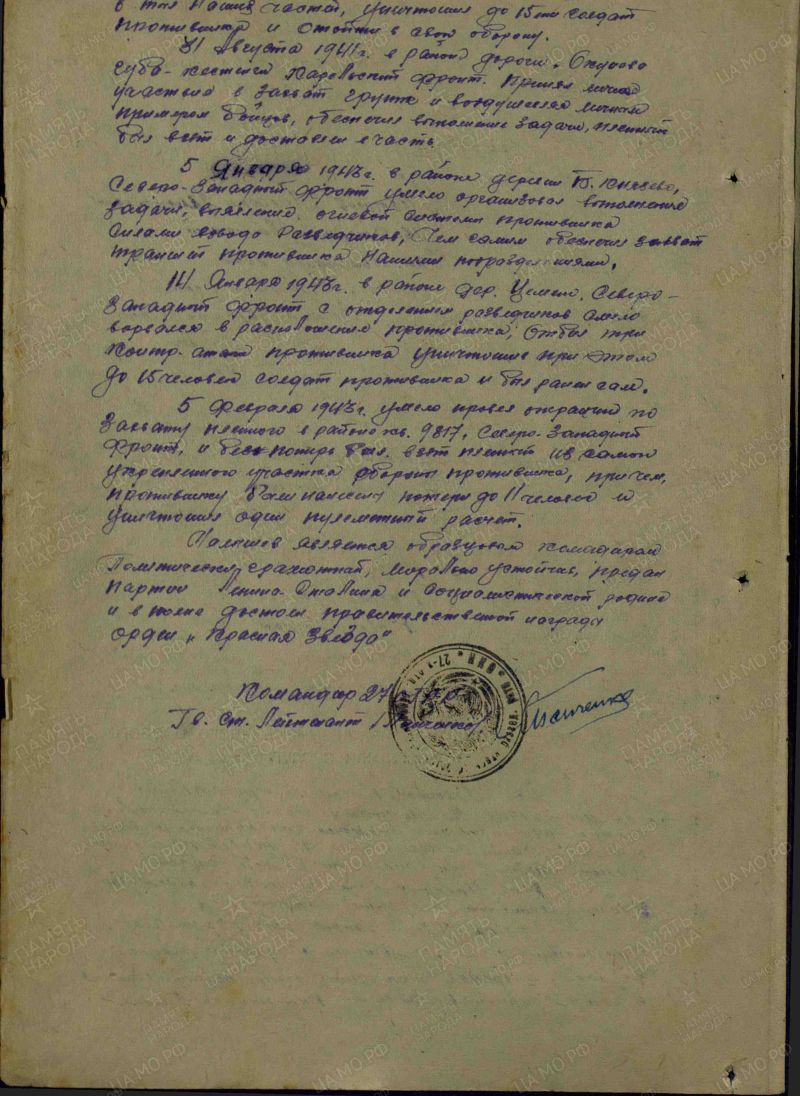 в тыл наших частей, уничтожив до 15ти солдат
противника и отойти в свою оборону.
31 Августа 1941г. в район дороги
Карельский фронт. Принял личное
участие в захват и воодушевляя личным
примером бойцов, обеспечил выполнение задачи, пленный
был взят и доставлен в часть.
5 Января 1943г. в районе деревни Б. Князево,
Северо-Западный фронт умело организовал выполнение
задачи, выявление огневой системы противника
силами взвода Разведчиков, Чем самим обеспечил захват
траншей противника нашими подразделениями.
14 Января 1943г. в районе дер. Цемено, Северо-
Западный фронт, с отделением разведчиков смело
ворвался в расположение противника, Отбил три
контр-атаки противника уничтожив при этом
до 15 человек солдат противника и был ранен сам.
5 Февраля 1943г. умело провел операции по
Захвату пленного в районе кв. 9817, Северо-Западный
Фронт, и без потерь был взят пленный из самого
укрепленного участка обороны противника, причем,
противнику были нанесены потери до 11 человек и
уничтожил один пулеметный расчет.
является образцовым командиром
Политически грамотный, морально устойчив, предан
партии Ленина-Сталина и социалистической родине
и вполне достоин правительственной награды
орден „Красная звезда"
Командир 27
Гв. Ст. Лейтенант /Панченко/
Панченко
ПАМЯТЬ НАРОДА
ЦА МО РФ